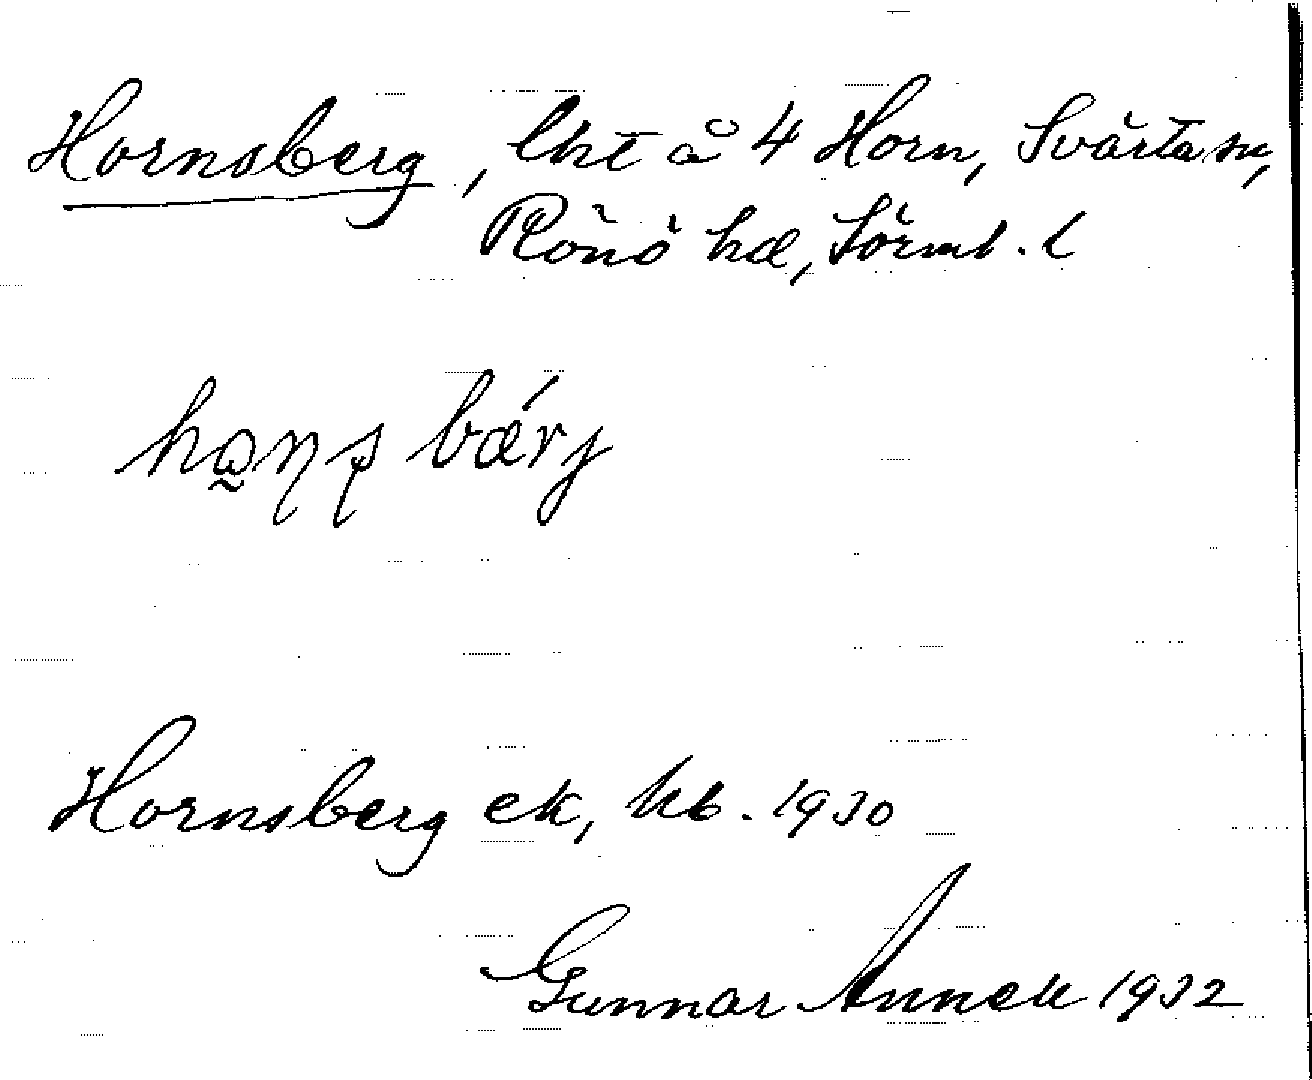 Hornsberg, lht å 4 Horn, Svärta sn,
Rönö hd, Sörml. l
Hornsberg ek, kb. 1930
Gunnar Annell 1932